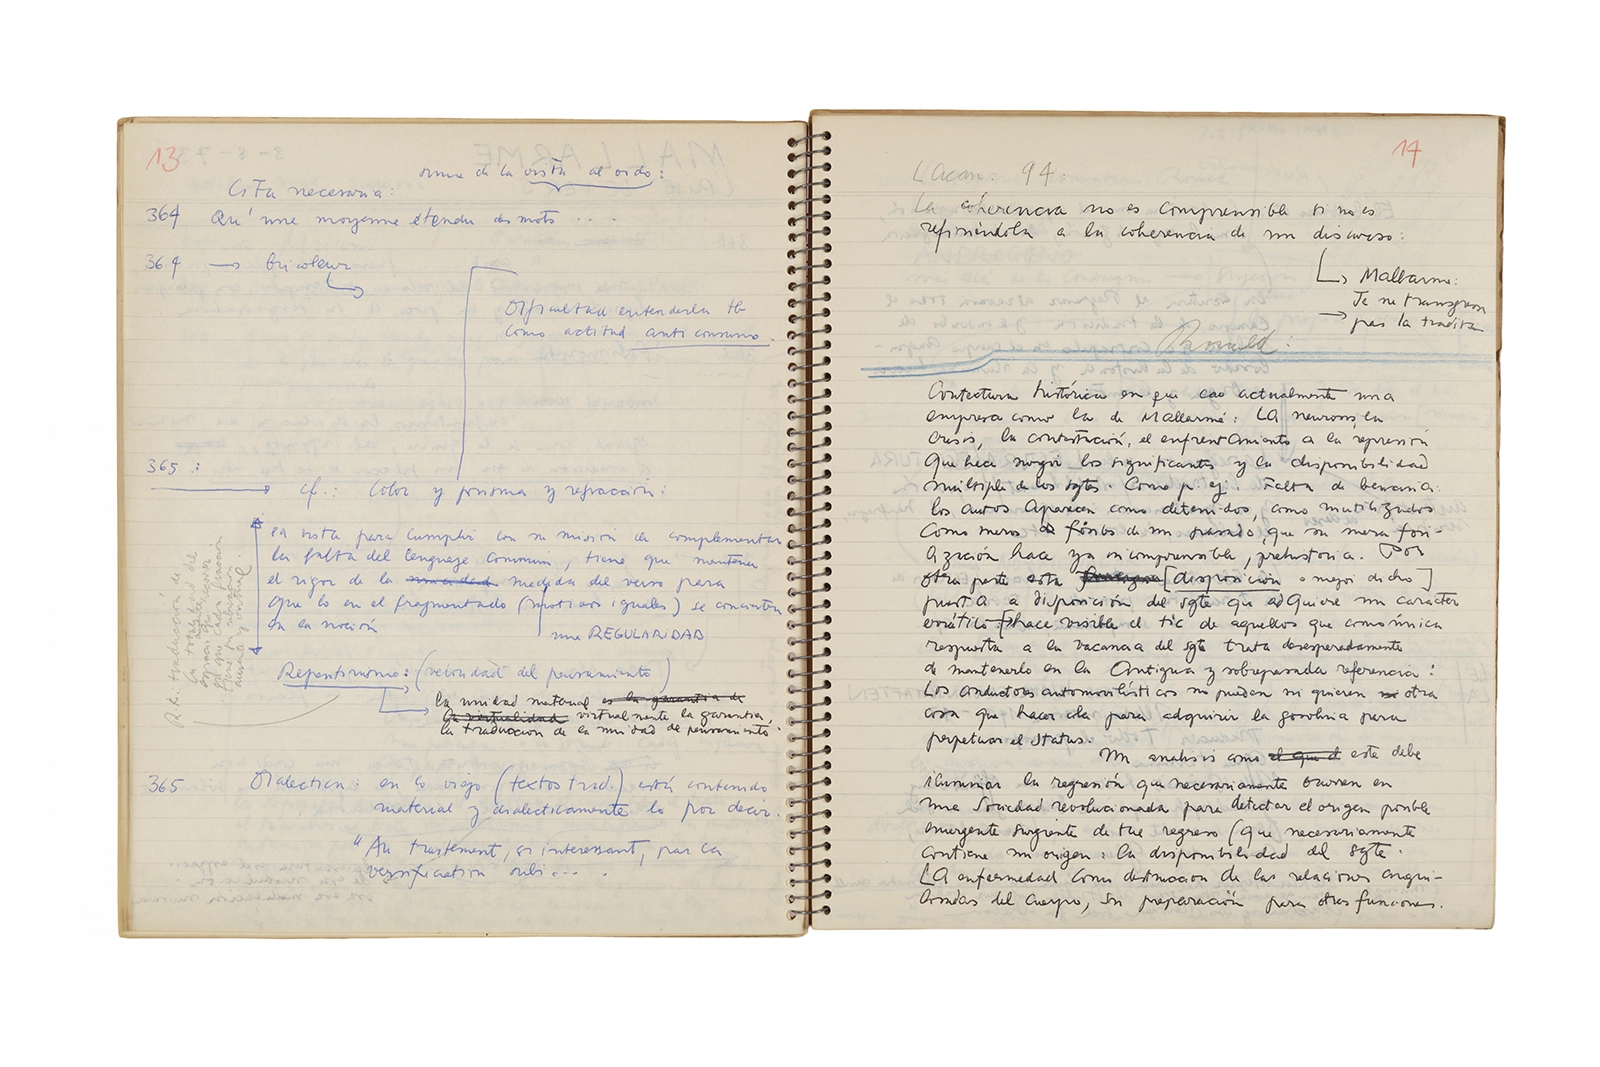 13
de la vista al oido:
Cita necesaria:
364 Qu'une moyenne étendu de mots ...
364 → bricoleur
Dificultad entenderla tb
como actitud anti consumo.
365 :
cf.: Color y prisma y refracción:
la vista para cumplir con su misión de complementar
la falta del lenguaje común, tiene que mantener
el rigor de la medida del verso para
que lo en el fragmentado (motivos iguales) se concierten
en la noción
una REGULARIDAD
Repentismo: (velocidad del pensamiento)
la unidad material es la garantía de
la virtualidad virtualmente la garantía,
la traducción de la unidad de pensamiento
365 Dialectica: en lo viejo (textos trad.) está contenido
material y dialécticamente lo por decir.
"Au traitement, si interessant, par la
versification subi....
14
Lacan. 94:
La coherencia no es comprensible si no es
refiriéndola a la coherencia de un discurso:
Mallarmé:
Je ne transgresse
→ pas la tradition
Ronald:
Contextura histórica en que cae actualmente una
empresa como la de Mallarmé: LA neurosis, la
crisis, la contestación, el enfrentamiento a la represión
que hace surgir los significantes y la disponibilidad
múltiple de los sgtes. Como p. ej.: Falta de bencina:
los autos aparecen como detenidos, como inutilizados
como meros de un pasado, que su mera
hace ya incomprensible, prehistoria. Por
otra parte esta [disposición o mejor dicho]
puesta a disposición del sgte que adquiere un carácter
errático hace visible el tic de aquellos que como única
respuesta a la vacancia del sgte trata desesperadamente
de mantenerlo en la Antigua y sobrepasada referencia:
Los conductores automovilísticos no pueden ni quieren otra
cosa que hacer cola para adquirir la gasolina para
perpetuar el status.
Un analisis como el que el este debe
iluminar la regresión que necesariamente ocurren en
una Sociedad revolucionada para detectar el origen posible
emergente surgiente de tal regreso (que necesariamente
contiene un origen: la disponibilidad del sgte.
LA enfermedad como destrucción de las relaciones anqui-
losadas del cuerpo, su preparación para otras funciones.